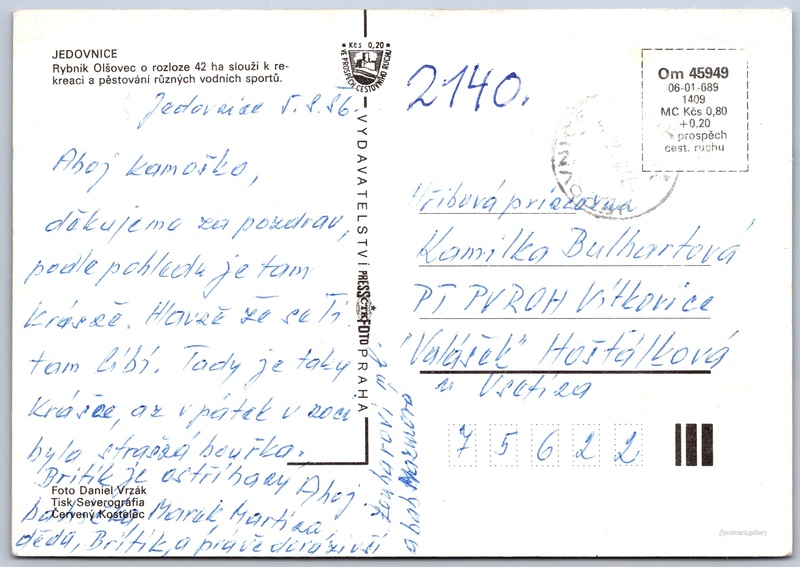 JEDOVNICE
Rybník Olšovec o rozloze 42 ha slouží k re-
kreaci a pěstování různých vodních sportů.
Jedovnice 5.8.86.
Ahoj kamoško,
děkujeme za pozdrav,
podle pohledu je tam
krásně. Hlavně že se Ti
tam líbí. Tady je taky
krásně, až v pátek v noci
byla strašná bouřka.
Britik je ostříhaný Ahoj
babička, Marek Martina
děda, Britik, a právě dorazivší
Kčs 0,20
VE PROSPĚCH CESTOVNÍHO RUCHU
VYDAVATELSTVÍ PRESSFOTO PRAHA
ČTK
Foto Daniel Vrzák
Tisk Severografia
Červený Kostelec
2140.
Om 45949
06-01-689
1409
MC Kčs 0,80
+0,20
prospěch
cest. ruchu
Hřibová princezna
Kamilka Bulhartová
PT PVROH Vítkovice
"Valášek" Hošťálková
u Vsetína
7 5 6 2 2